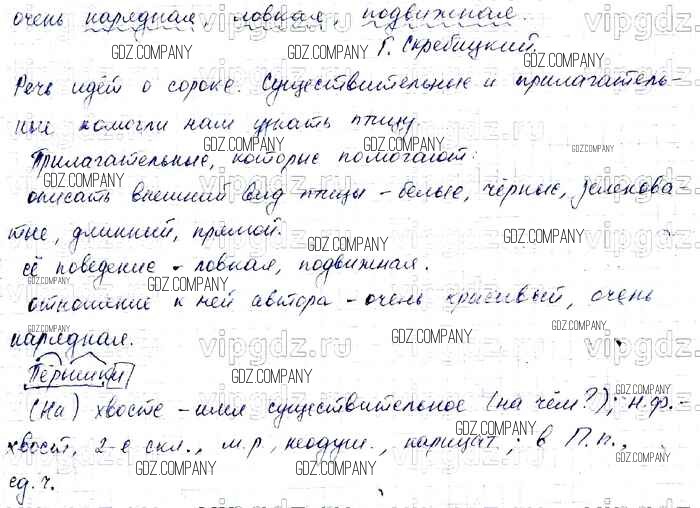 очень нарядная, ловкая, подвижная.
Г. Скребицкий.
Речь идёт о сороке. Существительные и прилагатель-
ные помогли нам узнать птицу.
Прилагательные, которые помогают:
описать внешний вид птицы – белые, чёрные, зеленова-
тые, длинный, прямой.
её поведение – ловкая, подвижная.
отношение к ней автора – очень красивый, очень
нарядная.
Пёрышки
(На) хвосте – имя существительное (на чём?); н.ф. –
хвост, 2-е скл., м.р., неодуш., нарицат.; в П.п.,
ед.ч.
GDZ.COMPANY
vipgdz.ru